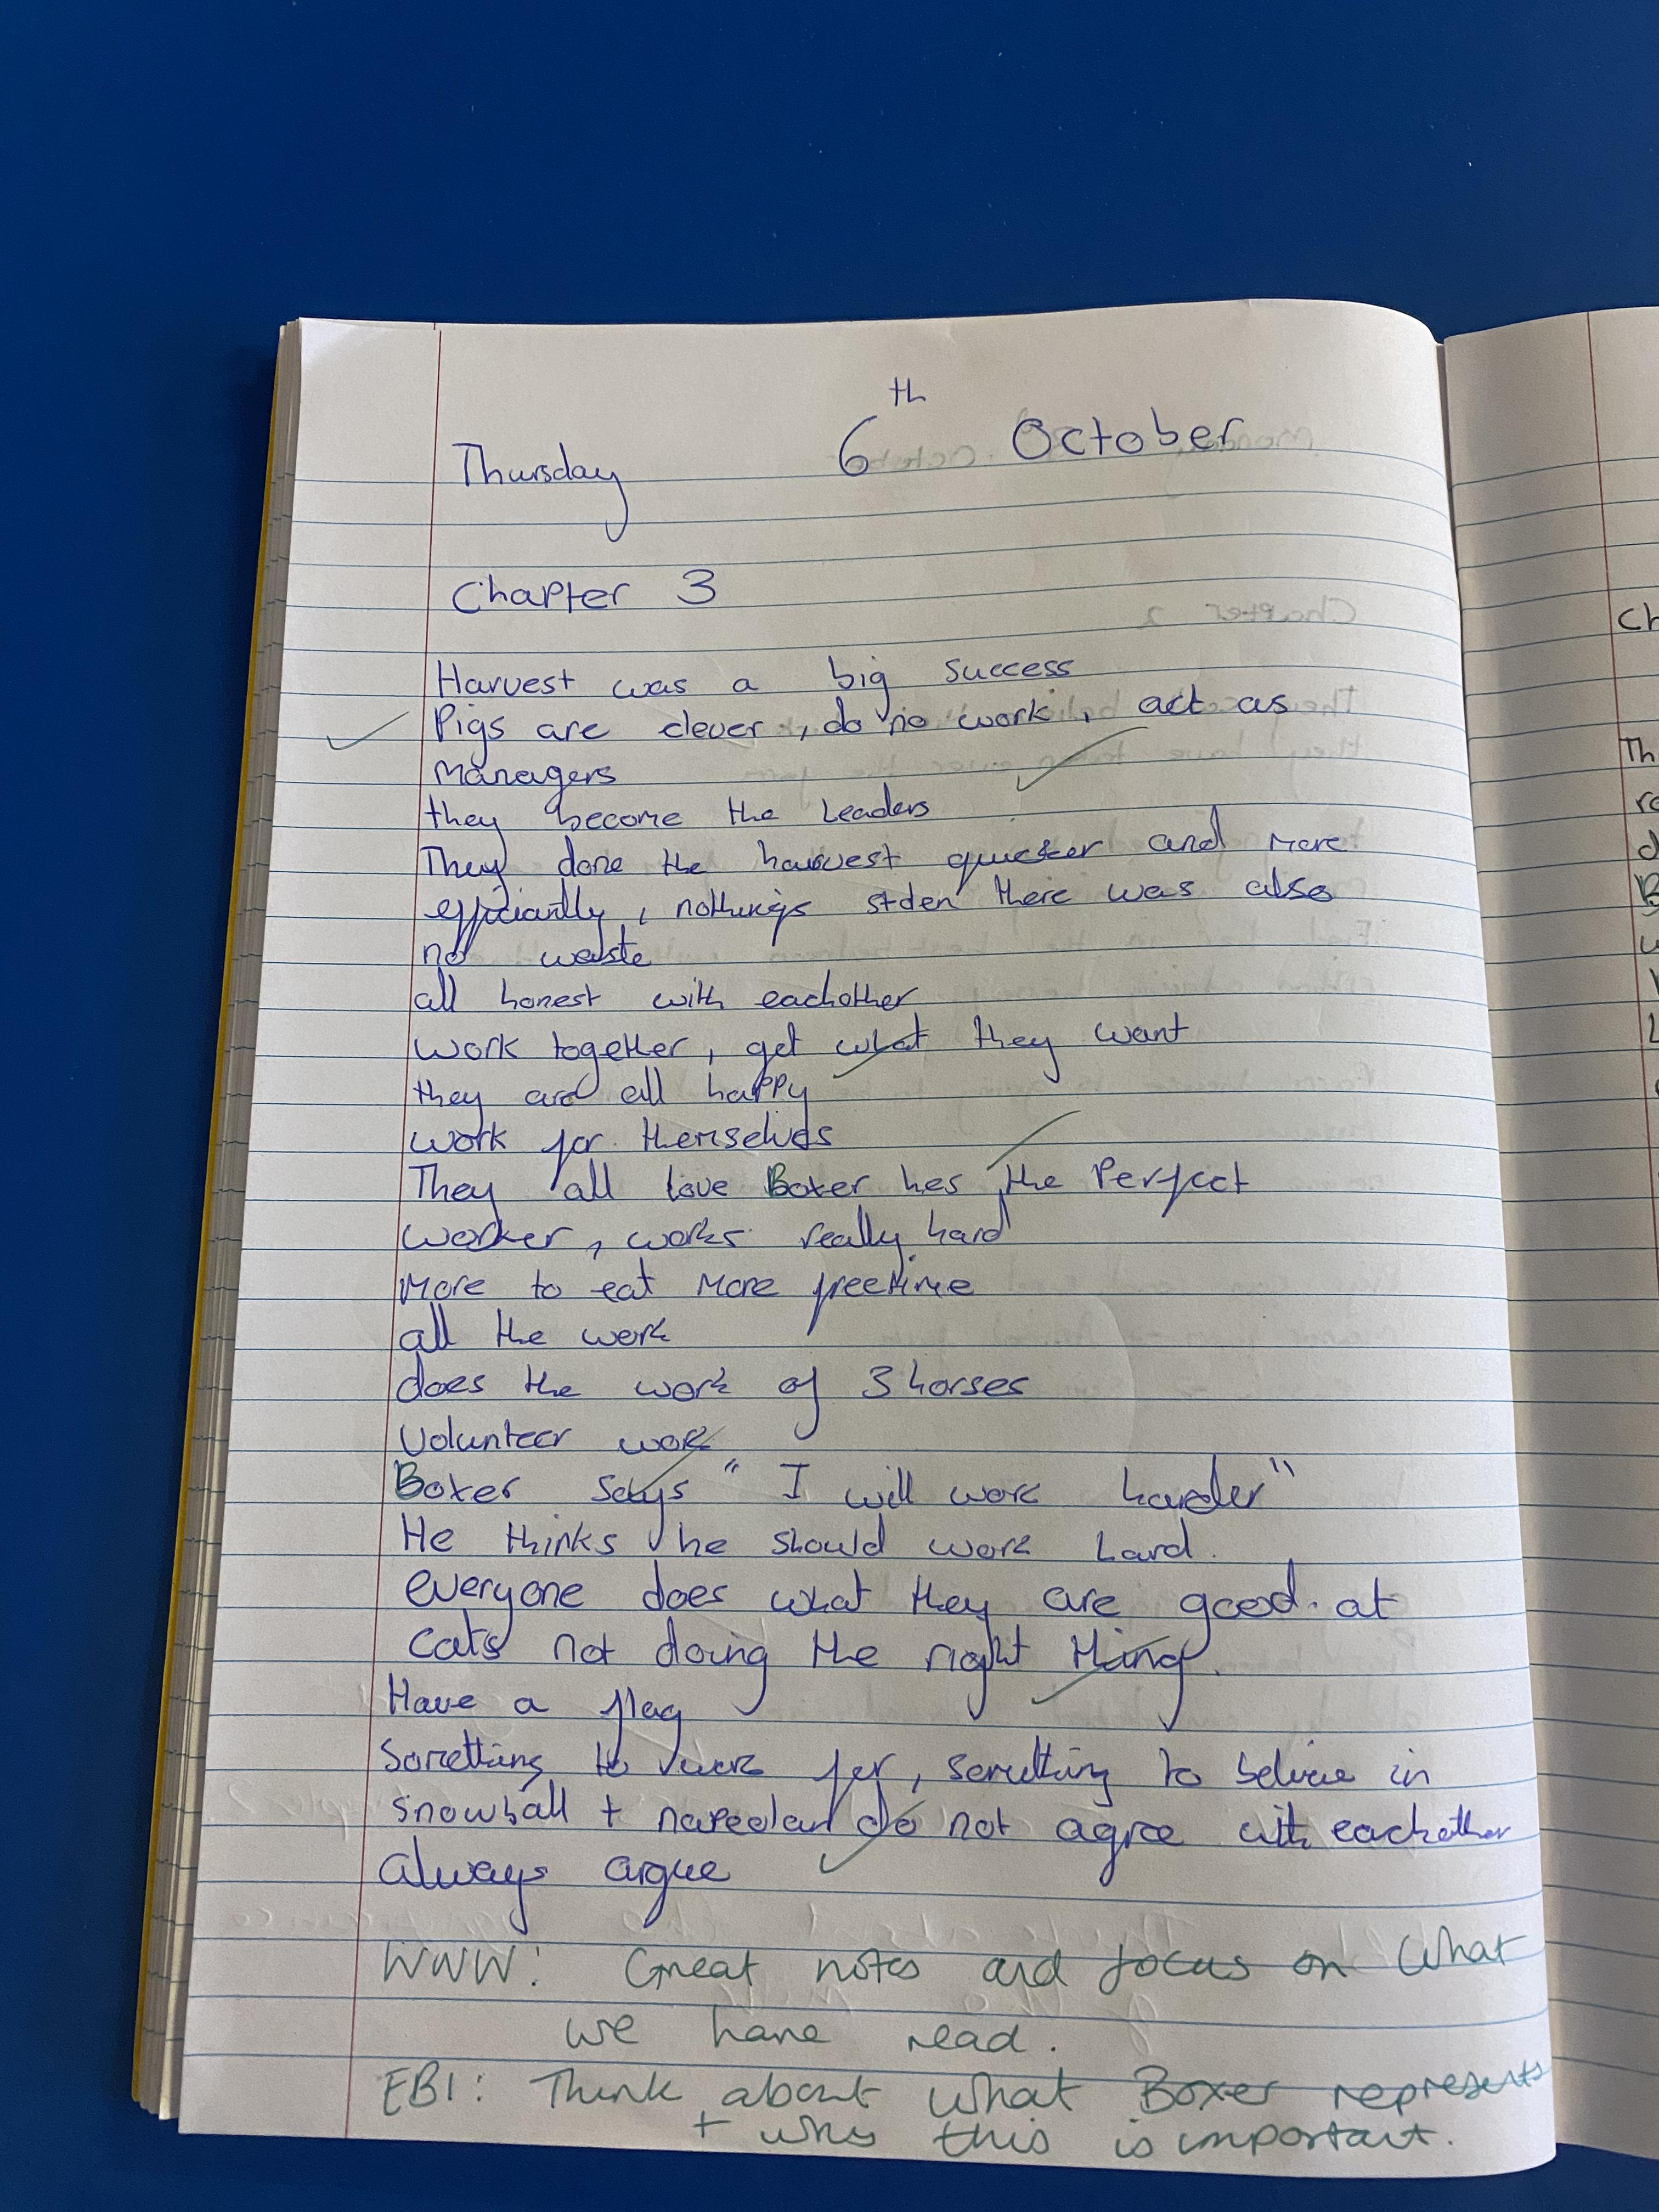 Thursday 6th October
Chapter 3
Harvest was a big success
Pigs are clever, do no work, act as
managers
they become the leaders
They done the harvest quicker and more
efficiantly, nothings stolen there was also
no waste
all honest with eachother
work together, get what they want
they are all happy
work for themselves
They all love Boxer hes the perfect
worker, works really hard
more to eat more freetime
all the work
does the work of 3 horses
Volunteer work
Boxer says "I will work harder"
He thinks he should work hard.
everyone does what they are good at
cats not doing the right thing.
Have a flag
Something to work for, something to believe in
snowball + napoleon do not agree with eachother
always argue
WWW: Great notes and focus on what
we have read.
EBI: Think about what Boxer represents
+ why this is important.
Ch
Th